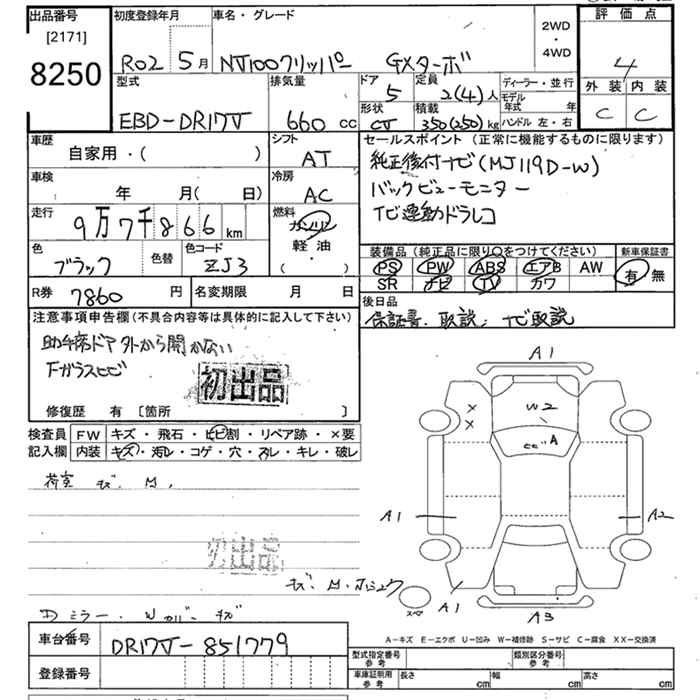 出品番号 初度登録年月 車名・グレード 評価点
[2171] 2WD
8250 R02 5月 NT100クリッパー GXターボ ・4WD 4
型式 排気量 ドア 定員 ディーラー・並行 外装 内装
5 2(4)人 モデル年式 年
EBD-DR17V 660cc 形状 積載 C C
CV 350(250)kg ハンドル 左・右
車歴 シフト セールスポイント (正常に機能するものに限ります)
自家用・( ) AT 純正後付ナビ(MJ119D-W)
車検 冷房 バックビューモニター
年 月( 日) AC ナビ連動ドラレコ
走行 燃料
9万7千866km ガソリン 装備品 (純正品に限り○をつけてください) 新車保証書
色 色替 色コード 軽油・ PS PW ABS エアB AW 有 無
ブラック ZJ3 ( ) SR ナビ TV カワ
R券 7860円 名変期限 月 日 後日品
保証書、取説、ナビ取説
注意事項申告欄(不具合内容等は具体的に記入して下さい)
助手席ドア外から開かない
Fガラスヒビ
初出品
修復歴 有 [箇所 ]
検査員 FW キズ・飛石・ヒビ割・リペア跡・×要
記入欄 内装 キズ・汚レ・コゲ・穴・スレ・キレ・破レ
荷室 キズ. M.
初出品
キズ. M.
Dミラー. Wカバー. キズ
A1
W2
A
A1 A2
スペア A1 A3
A-キズ E-エクボ U-凹み W-補修跡 S-サビ C-腐食 XX-交換済
車台番号 DR17V-851779
型式指定番号 参考 類別区分番号 参考
登録番号 車庫証明用 参考 長さ cm 幅 cm 高さ cm